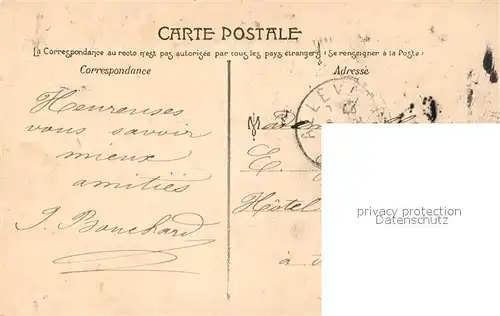 CARTE POSTALE
La Correspondance au recto n'est pas autorisée par tous les pays étrangers (Se renseigner à la Poste)
Correspondance
Adresse
Heureuses
vous savoir
mieux
amitiés
J. Bouchard
ALLEVA
E.
Hôtel
à
privacy protection
Datenschutz